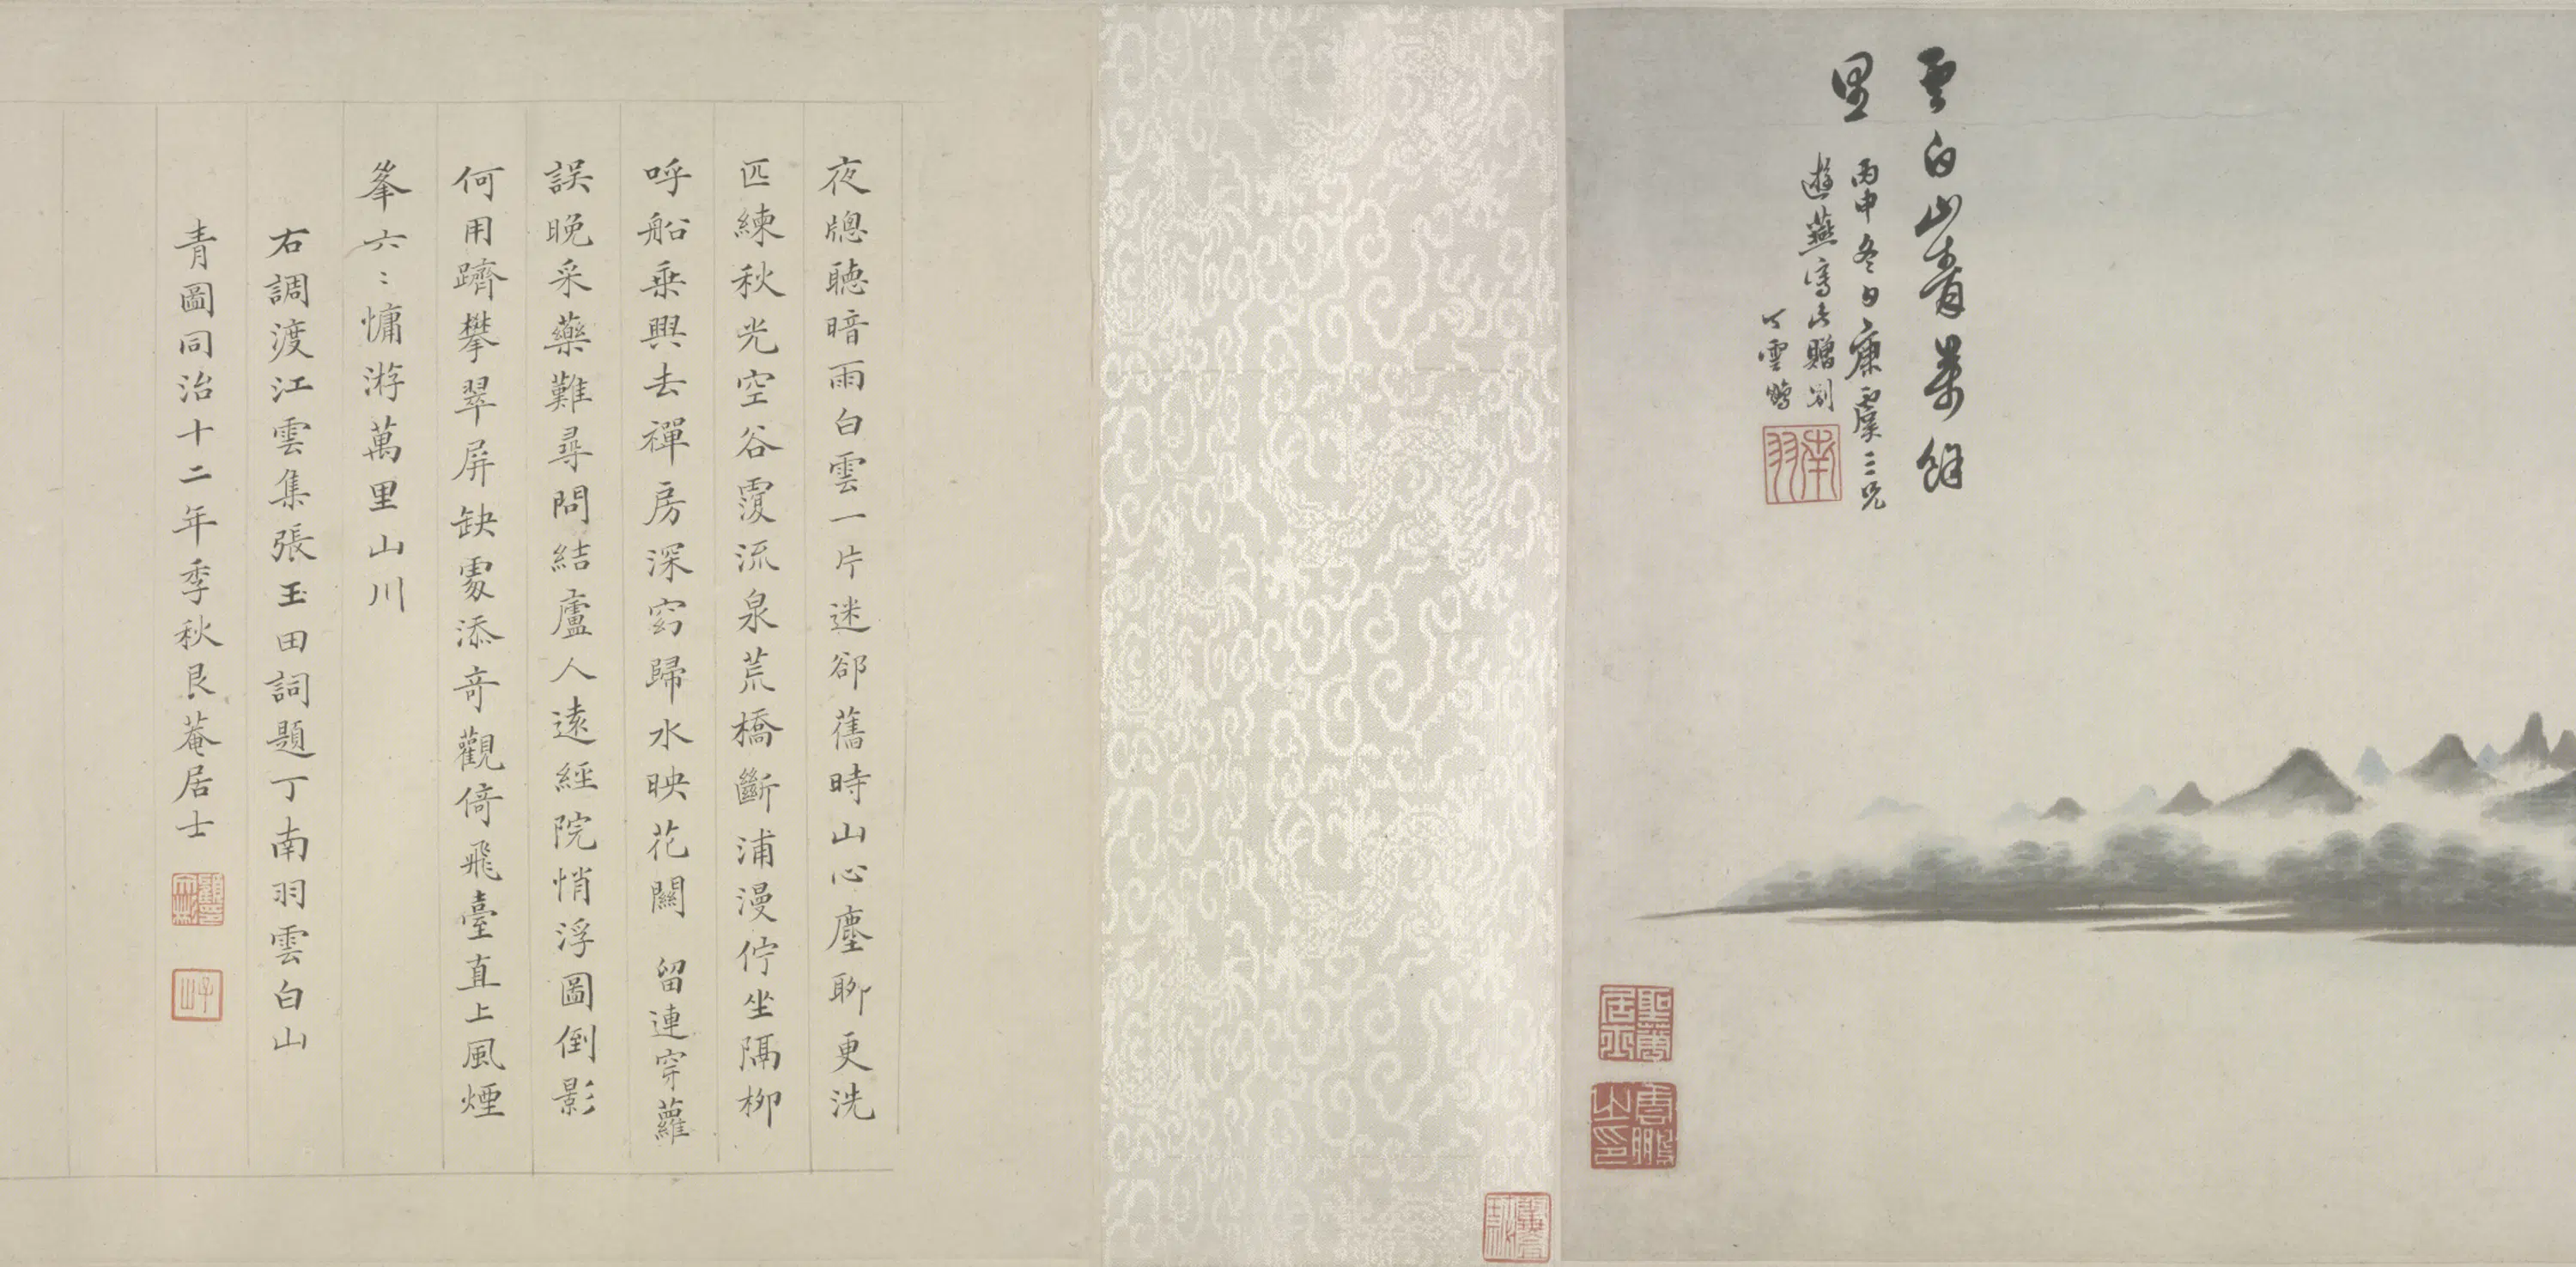 雲白山青萬餘
里
丙申冬日康虞三兄
遊燕寫此贈別
丁雲鵬
南羽
雲鵬之印
夜牕聽暗雨白雲一片迷卻舊時山心塵聊更洗
匹練秋光空谷覆流泉荒橋斷浦漫佇坐隔柳
呼船乗興去禪房深窈歸水映花關 留連穿蘿
誤晚采藥難尋問結廬人遠經院悄浮圖倒影
何用躋攀翠屏缺處添奇觀倚飛臺直上風煙
峯六〻慵游萬里山川
右調渡江雲集張玉田詞題丁南羽雲白山
青圖同治十二年季秋艮菴居士
子山